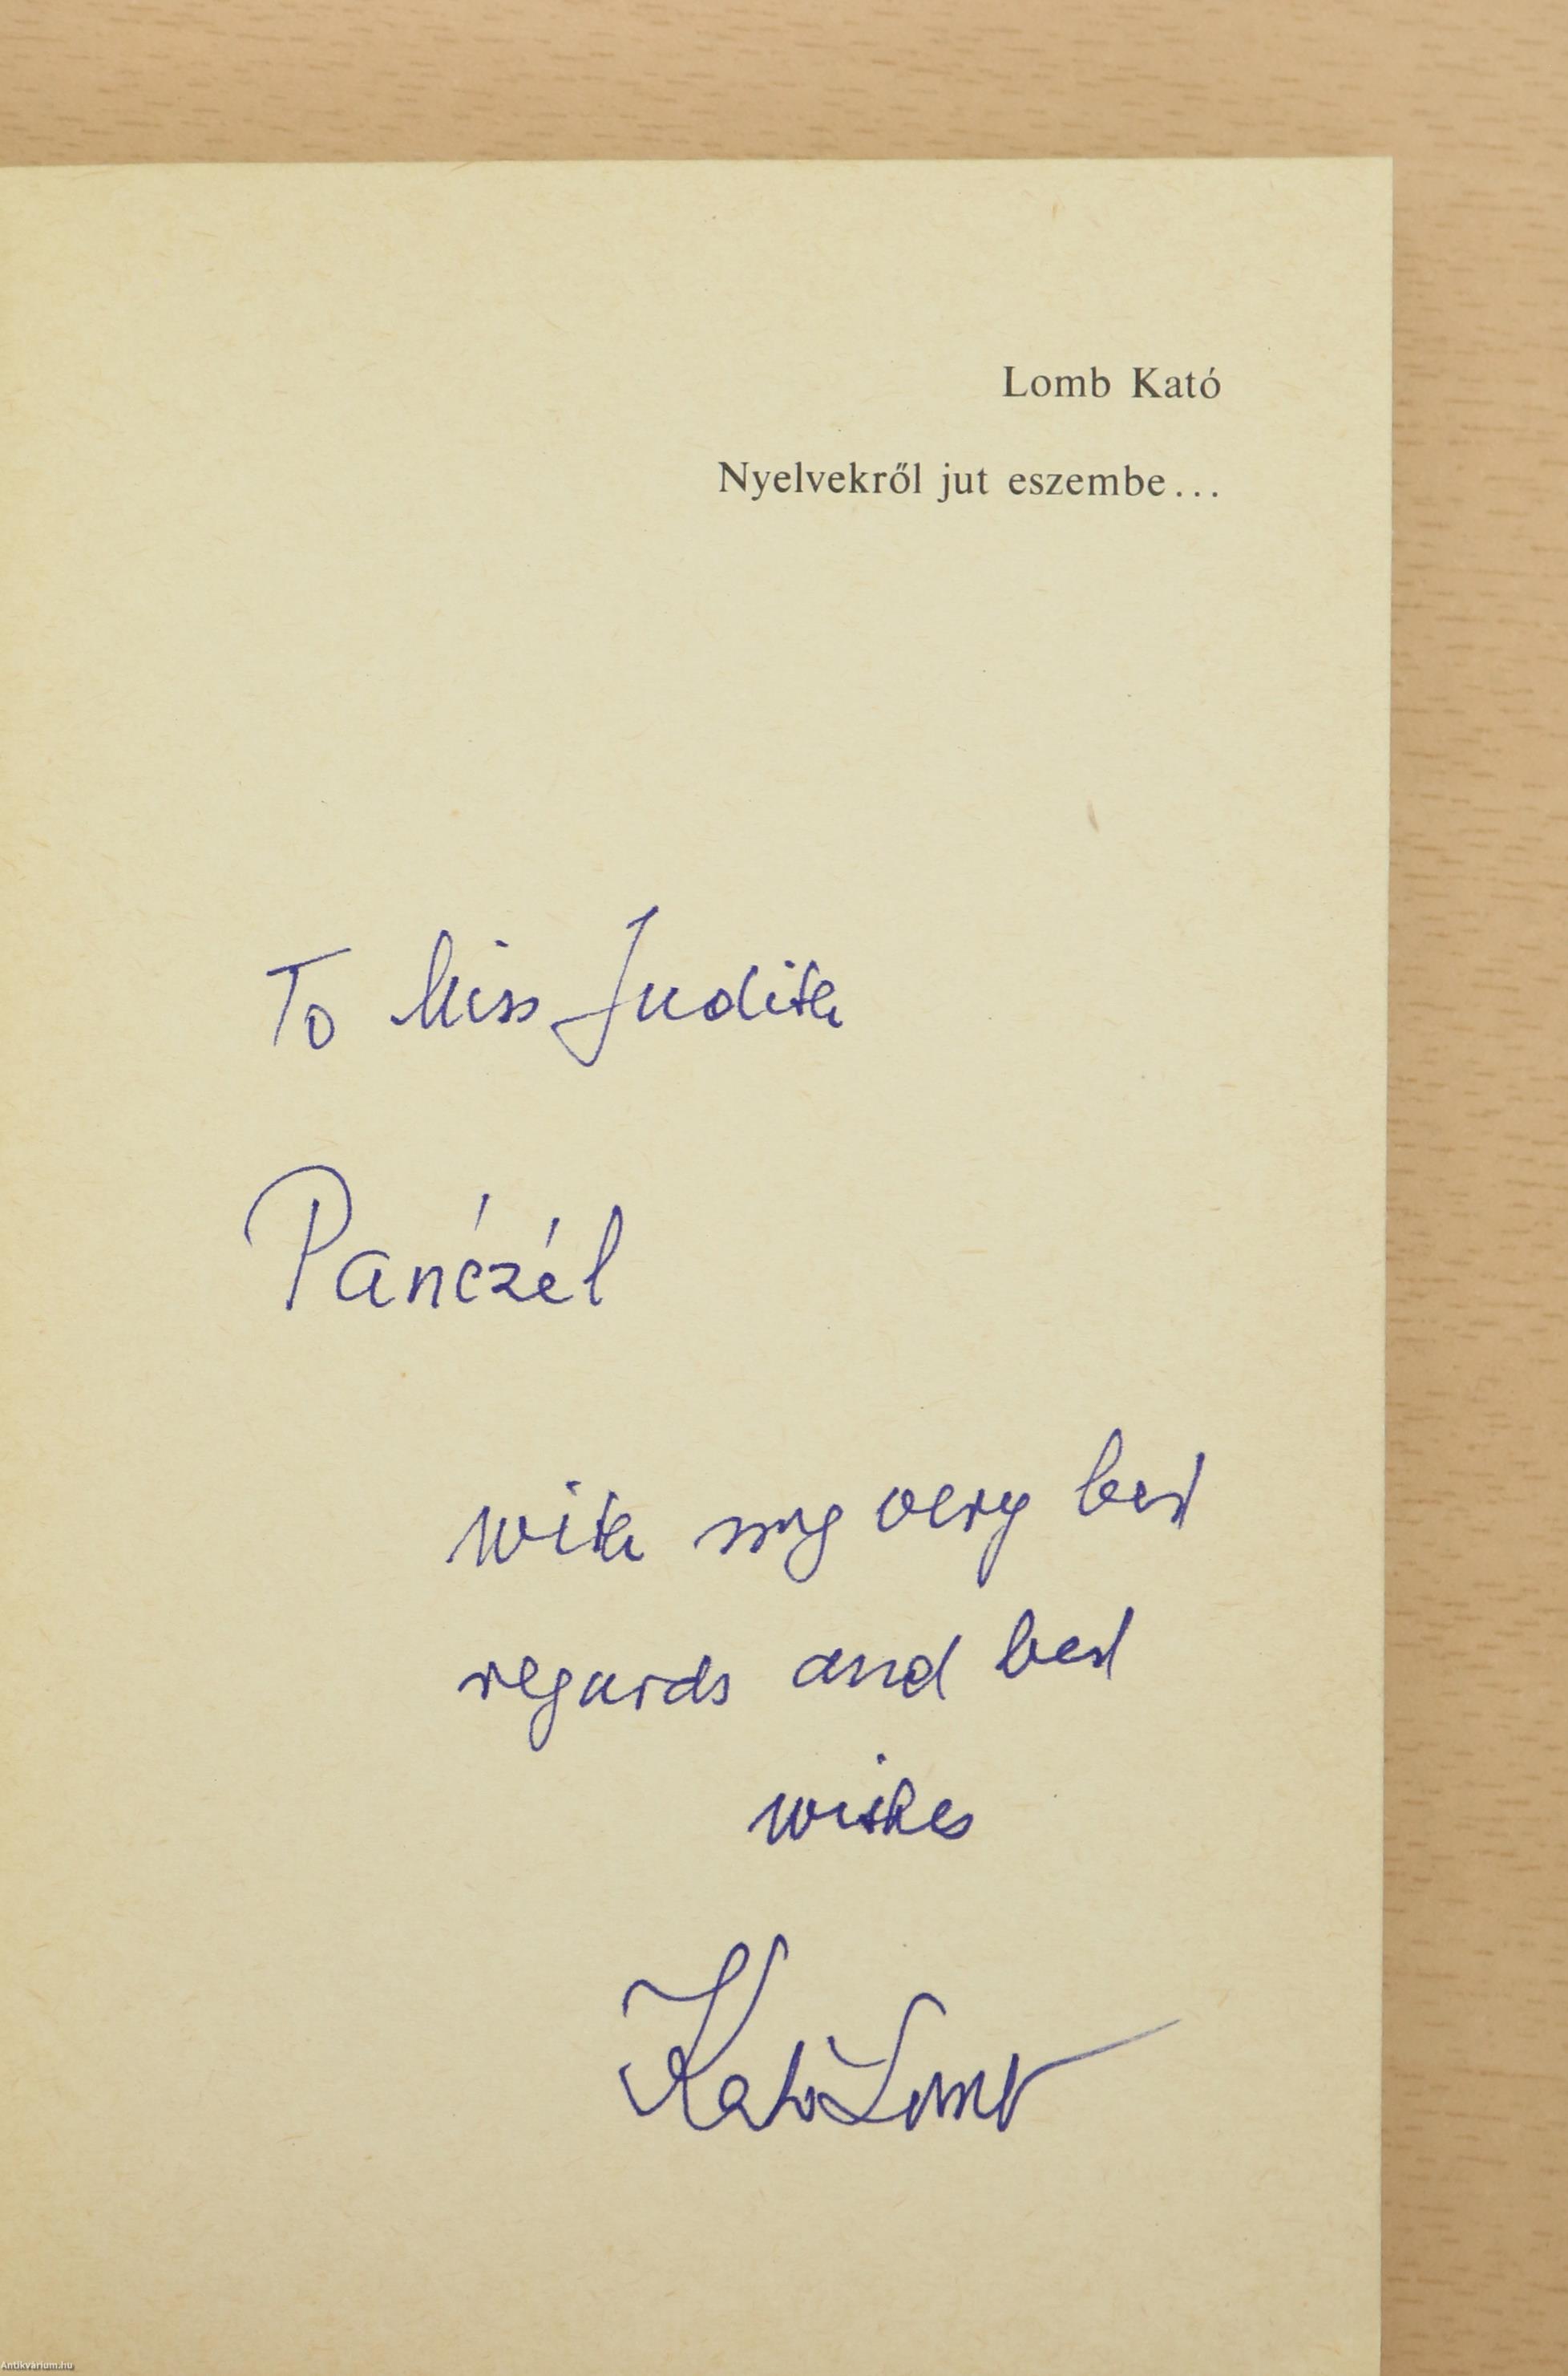 Lomb Kató
Nyelvekről jut eszembe...
To Miss Judith
Panćzél
with my very best
regards and best
wishes
Kató Lomb
Antikvárium.hu